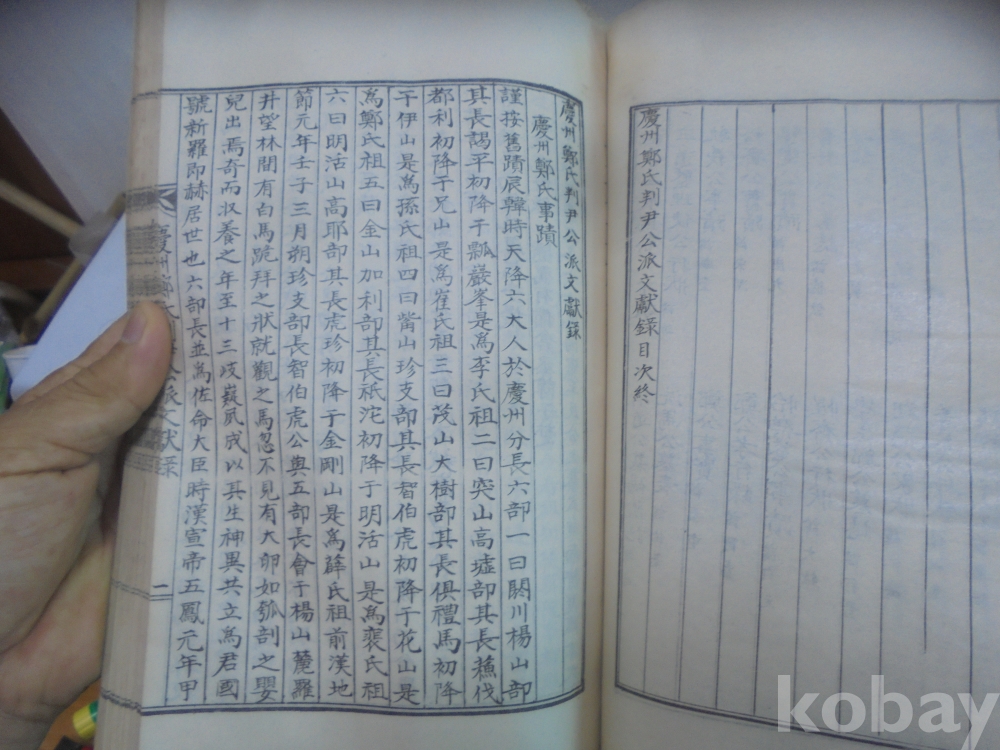 慶州鄭氏判尹公派文獻錄目次終
慶州鄭氏判尹公派文獻錄
慶州鄭氏事蹟
謹按舊蹟辰韓時天降六大人於慶州分長六部一曰閼川楊山部
其長謁平初降于瓢巖峯是爲李氏祖二曰突山高墟部其長蘇伐
都利初降于兄山是爲崔氏祖三曰茂山大樹部其長俱禮馬初降
于伊山是爲孫氏祖四曰觜山珍支部其長智伯虎初降于花山是
爲鄭氏祖五曰金山加利部其長祇沱初降于明活山是爲裵氏祖
六曰明活山高耶部其長虎珍初降于金剛山是爲薛氏祖前漢地
節元年壬子三月朔珍支部長智伯虎公與五部長會于楊山麓羅
井望林間有白馬跪拜之狀就觀之馬忽不見有大卵如瓠剖之嬰
兒出焉奇而收養之年至十三岐嶷夙成以其生神異共立爲君國
號新羅即赫居世也六部長並爲佐命大臣時漢宣帝五鳳元年甲
慶州鄭氏判尹公派文獻錄
二
kobay